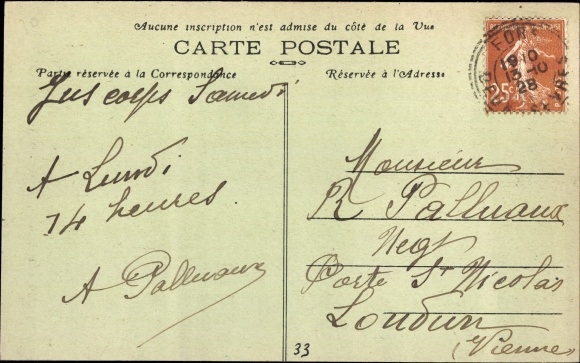 Aucune inscription n'est admise du côté de la Vue
CARTE POSTALE
Partie réservée à la Correspondance
Réservée à l'Adresse
Samedi
A Lundi
14 heures.
A Palluaux
Monsieur
R Palluaux
Negt
Porte St Nicolas
Loudun
(Vienne)
19 10
13-10
28
25c
33